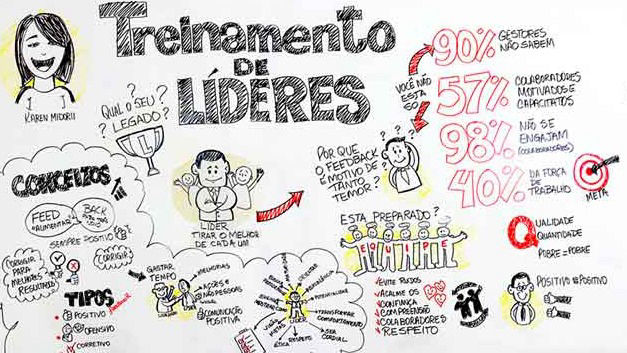 Treinamento
DE
LÍDERES
KAREN MIDORII
QUAL O SEU
LEGADO?
L
LÍDER
TIRAR O MELHOR
DE CADA UM
POR QUE
O FEEDBACK
É MOTIVO DE
TANTO
TEMOR?
VOCÊ NÃO
ESTA
SO
90%
GESTORES
NÃO SABEM
57%
COLABORADORES
MOTIVADOS E
CAPACITADOS
98%
NÃO SE
ENGAJAM
(COLABORADORES)
40%
DA FORÇA
DE
TRABALHO
META
ESTA PREPARADO?
EQUIPE
EVITE RUIDOS
ACALME OS
CONFIANÇA
COMPREENSÃO
COLABORADORES
RESPEITO
QUALIDADE
QUANTIDADE
POBRE = POBRE
POSITIVO = POSITIVO
CONCEITOS
FEED
=ALIMENTAR
BACK
SEMPRE POSITIVO
CORRIGIR
PARA
MELHORES
RESULTADOS
CORRIGIR
TIPOS
POSITIVO
OFENSIVO
CORRETIVO
GASTAR
TEMPO
MELHORIAS
AÇÕES E
NÃO PESSOAS
COMUNICAÇÃO
POSITIVA
LIDER
TRANSFORMAR
COMPORTAMENTO
SER
CORDIAL
ÉTICA
RESPEITO